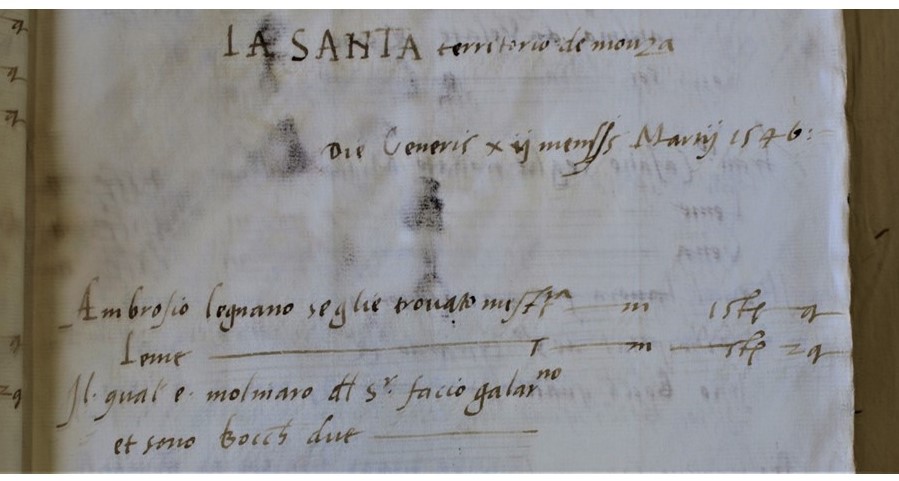 LA SANTA territorio de monza
Die Veneris xij mensis Martij 1546:
Ambrosio legnano seglie trovato mistura m 1 st q
Leme m st 2 q
Il qual e molinaro dl Sr. faccio galarno
et sono bocch due